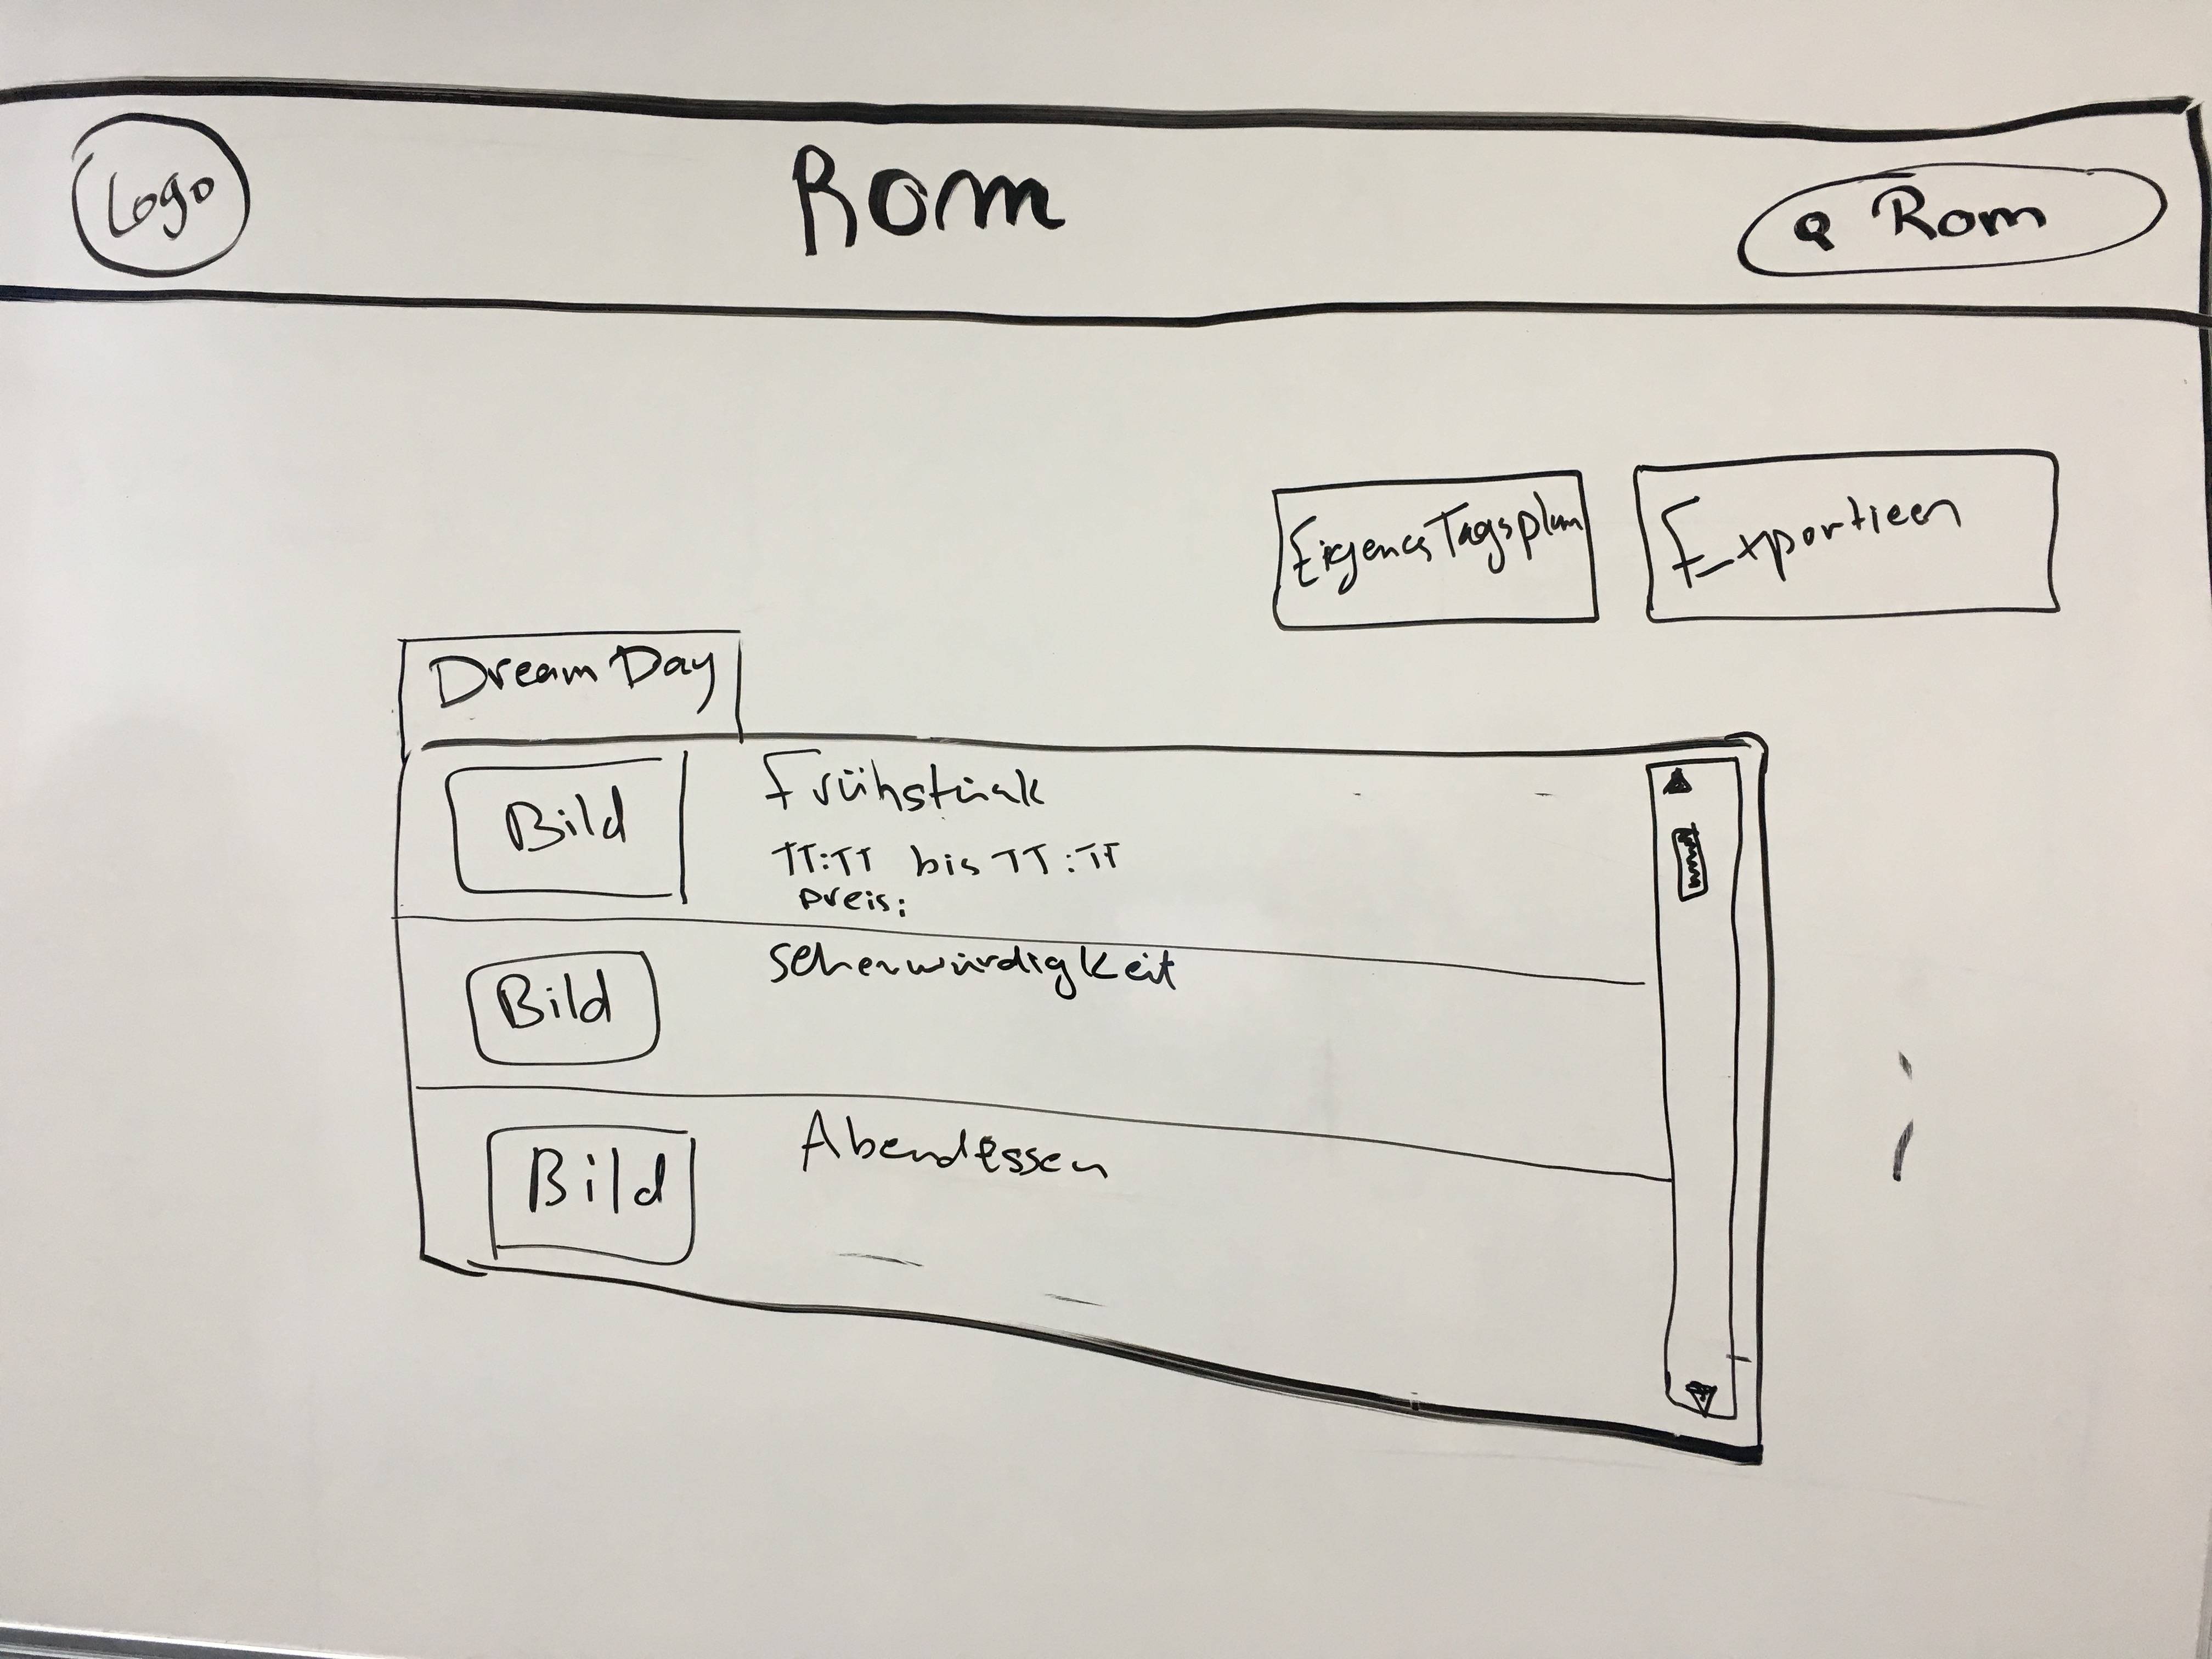 Logo
Rom
Rom
Eigenes Tagsplan
Exportieen
Dream Day
Bild
Frühstück
TT:TT bis TT:TT
Preis:
Bild
Sehenwürdigkeit
Bild
Abendessen